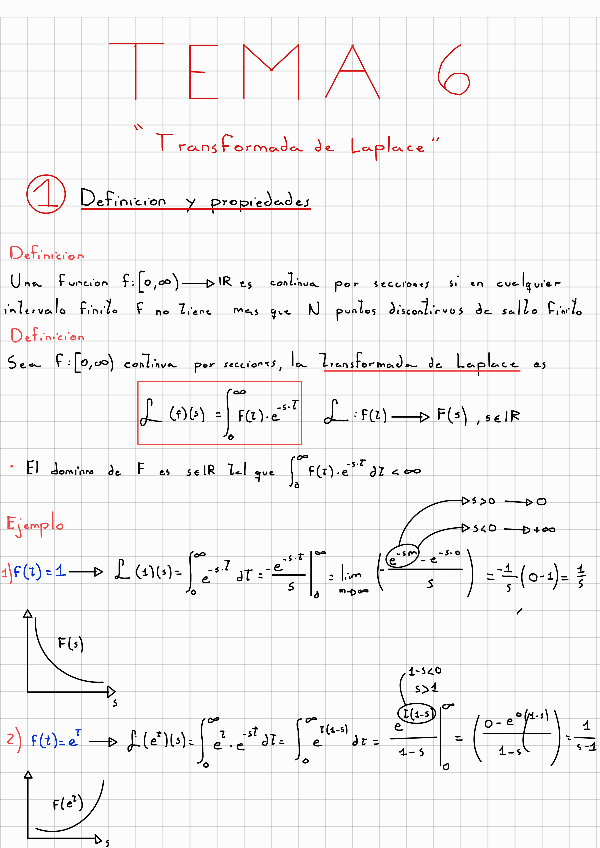 TEMA 6
"Transformada de Laplace"
① Definicion y propiedades
Definicion
Una funcion f:[0,∞)→ℝ es continua por secciones si en cualquier
intervalo finito f no tiene mas que N puntos discontinuos de salto finito
Definicion
Sea f:[0,∞) continua por secciones, la Transformada de Laplace es
ℒ(f)(s) = ∫₀^∞ F(t)·e^(-s·t)   ℒ : F(t) → F(s), s∈ℝ
· El dominio de F es s∈ℝ tal que ∫₀^∞ f(t)·e^(-s·t) dt < ∞
Ejemplo
s>0 → 0
s<0 → +∞
1) f(t)=1 → ℒ(1)(s) = ∫₀^∞ e^(-s·t) dt = -e^(-s·t)/s |₀^∞ = lim m→∞ (- (e^(-sm) - e^(-s·0))/s) = -1/s (0-1) = 1/s
F(s)
s
1-s<0
s>1
2) f(t)=e^t → ℒ(e^t)(s) = ∫₀^∞ e^t·e^(-st) dt = ∫₀^∞ e^(t(1-s)) dt = e^(t(1-s))/(1-s) |₀^∞ = ((0-e^(0(1-s)))/(1-s)) = 1/(s-1)
F(e^t)
s